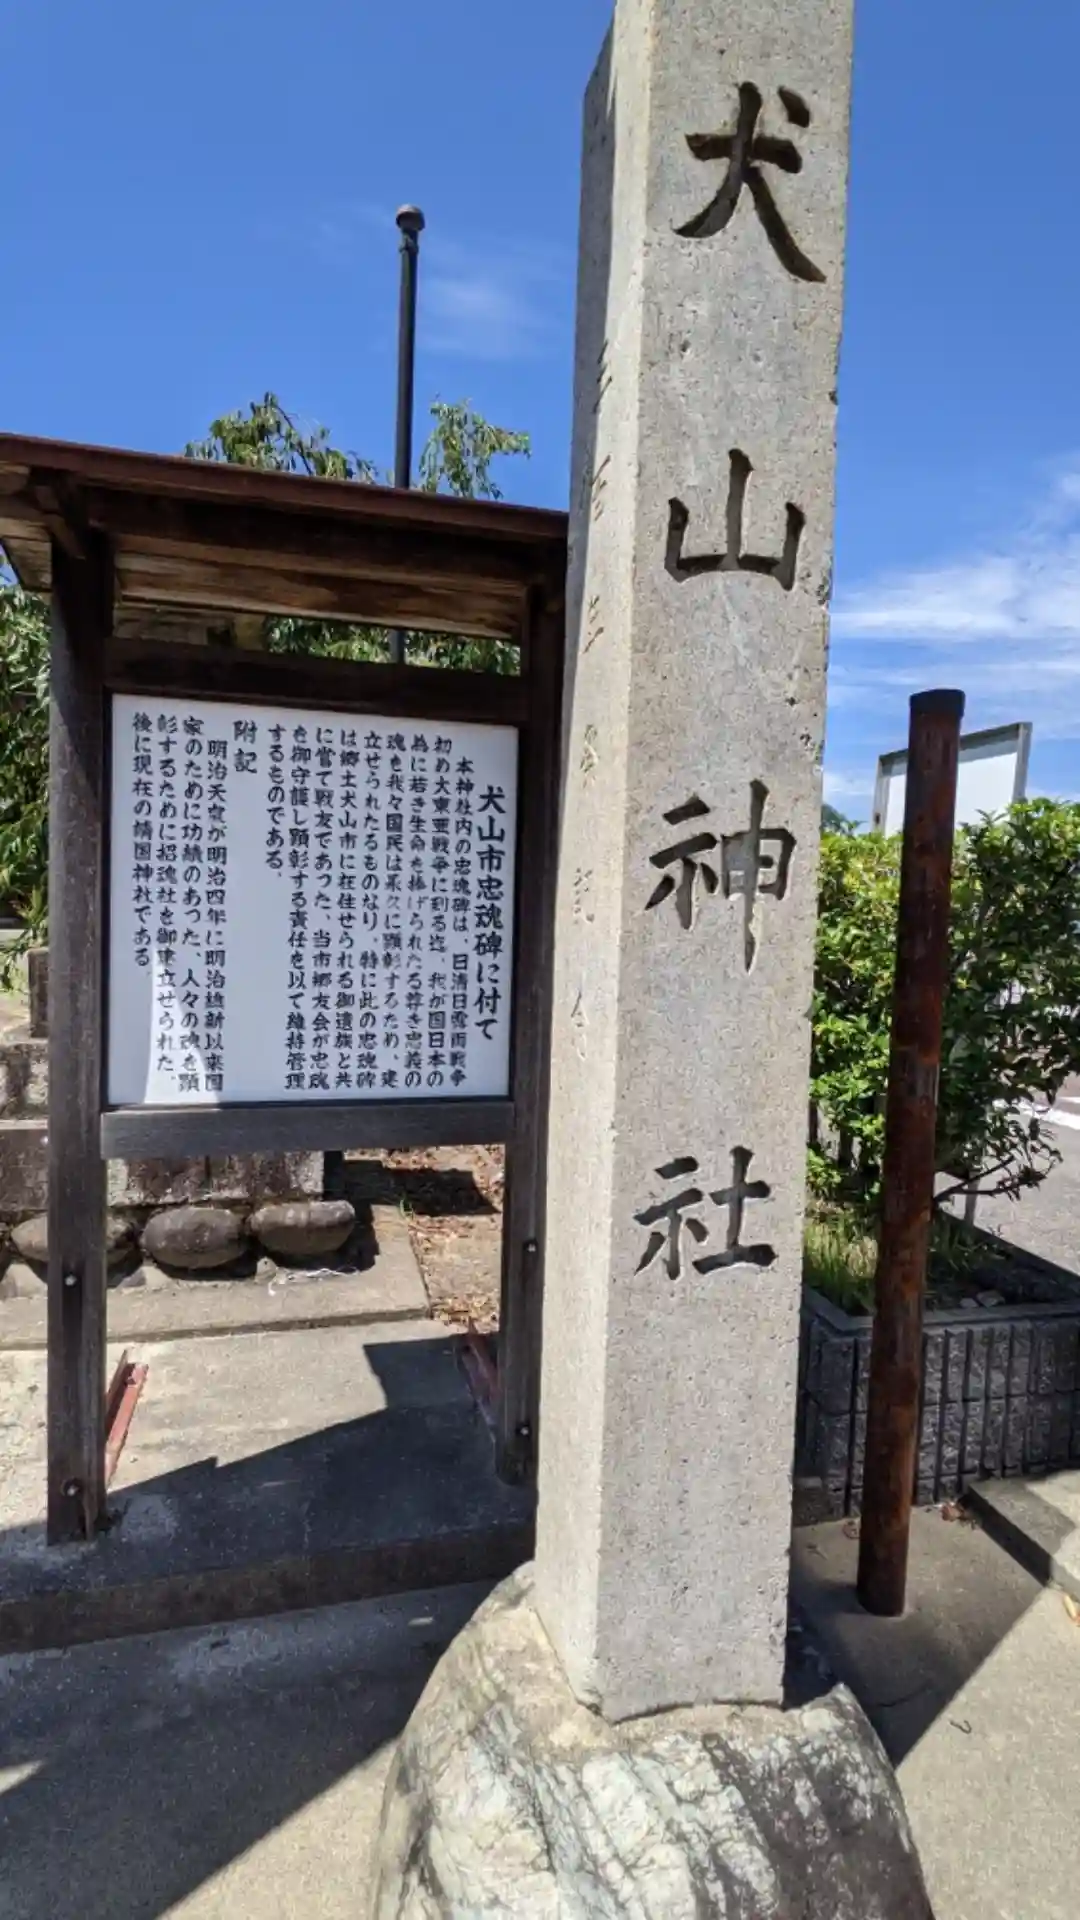 犬山神社
犬山市忠魂碑に付て
本神社内の忠魂碑は、日清日露両戦争
初め大東亜戦争に到る迄、我が国日本の
為に若き生命を捧げられたる尊き忠義の
魂を我々国民は永久に顕彰するため、建
立せられたるものなり、特に此の忠魂碑
は郷土犬山市に在住せられる御遺族と共
に嘗て戦友であった、当市郷友会が忠魂
を御守護し顕彰する責任を以て維持管理
するものである。
附記
明治天皇が明治四年に明治維新以来国
家のために功績のあった、人々の魂を顕
彰するために招魂社を御建立せられた、
後に現在の靖国神社である。